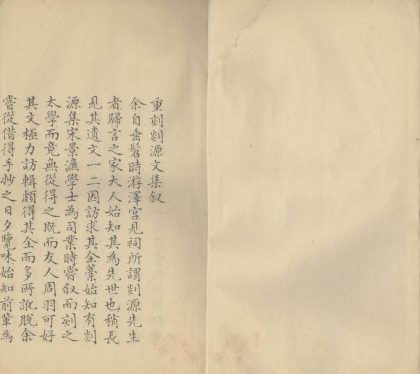 重刻剡源文集叙
余自垂髫時游澤宮見祠所謂剡源先生
者歸言之家大人始知其為先世也稍長
見其遺文一二因訪求其全藁始知有剡
源集宋景濂學士為司業時嘗叙而刻之
太學而竟無從得之既而友人周羽可好
其文極力訪輯頗得其全而多所訛脫余
嘗從借得手抄之日夕覽味始知前輩為